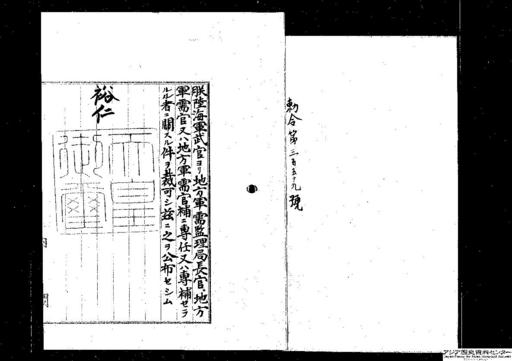 勅令第三百五十九號
朕陸海軍武官ヨリ地方軍需監理局長官、地方
軍需官又ハ地方軍需官補ニ專任又ハ專補セラ
ルル者ニ關スル件ヲ裁可シ茲ニ之ヲ公布セシム
裕仁
天皇
御璽
アジア歴史資料センター